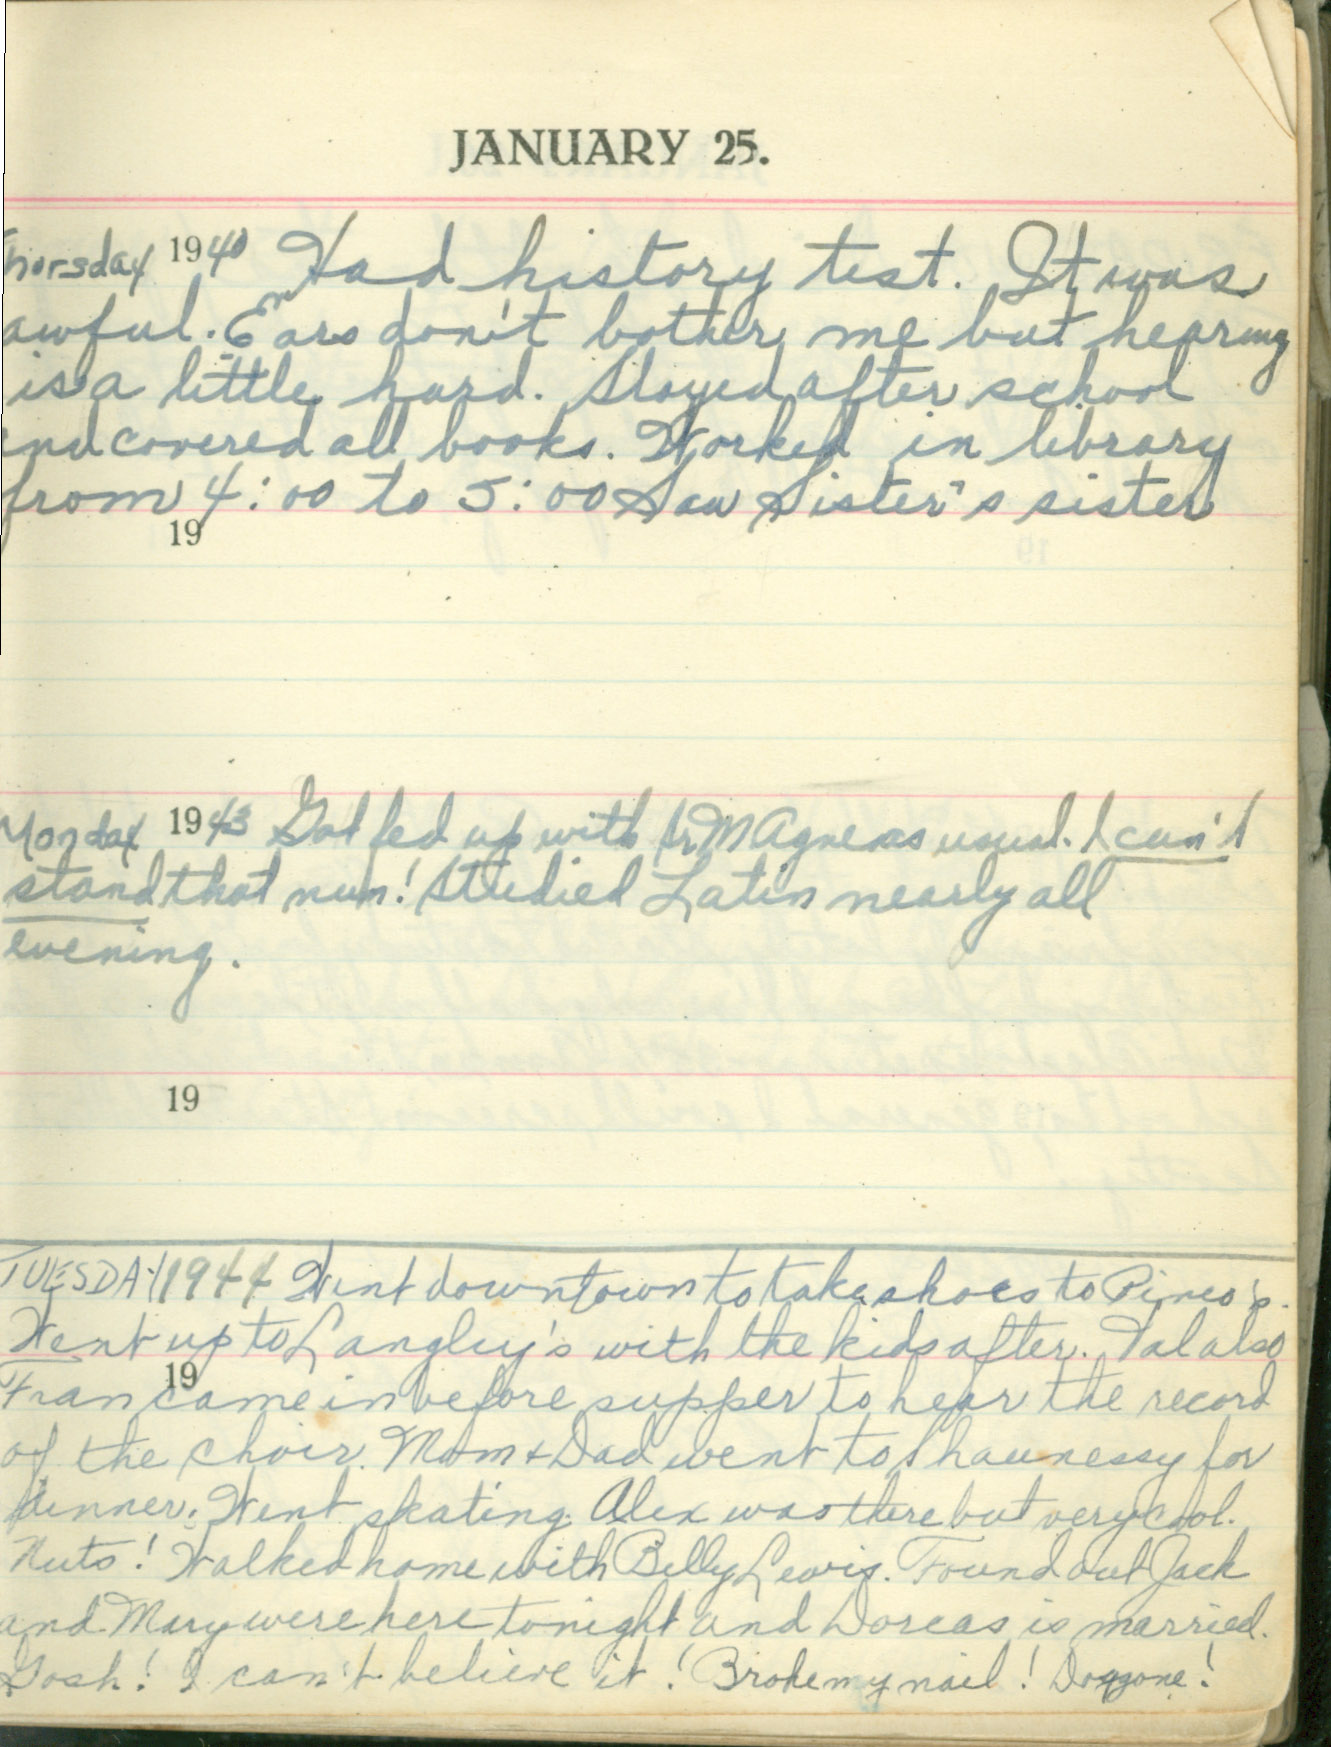 JANUARY 25.
Thorsday 1940 Had history test. It was
awful. Ears don't bother me but hearing
is a little hard. Stayed after school
and covered all books. Worked in library
from 4:00 to 5:00 Saw Sister's sister
19
Monday 1943 Got fed up with Sr M Agnes as usual. I can't
stand that nun! Studied Latin nearly all
evening.
19
TUESDAY 1944 Went downtown to take shoes to Pineo's.
Went up to Langley's with the kids after. Val also
19
Fran came in before supper to hear the record
of the choir. Mom + Dad went to Shaunessy for
dinner. Went skating. Alex was there but very cool.
Nuts! Walked home with Billy Lewis. Found out Jack
and Mary were here tonight and Dorcas is married.
Gosh! I can't believe it! Broke my nail! Doggone!